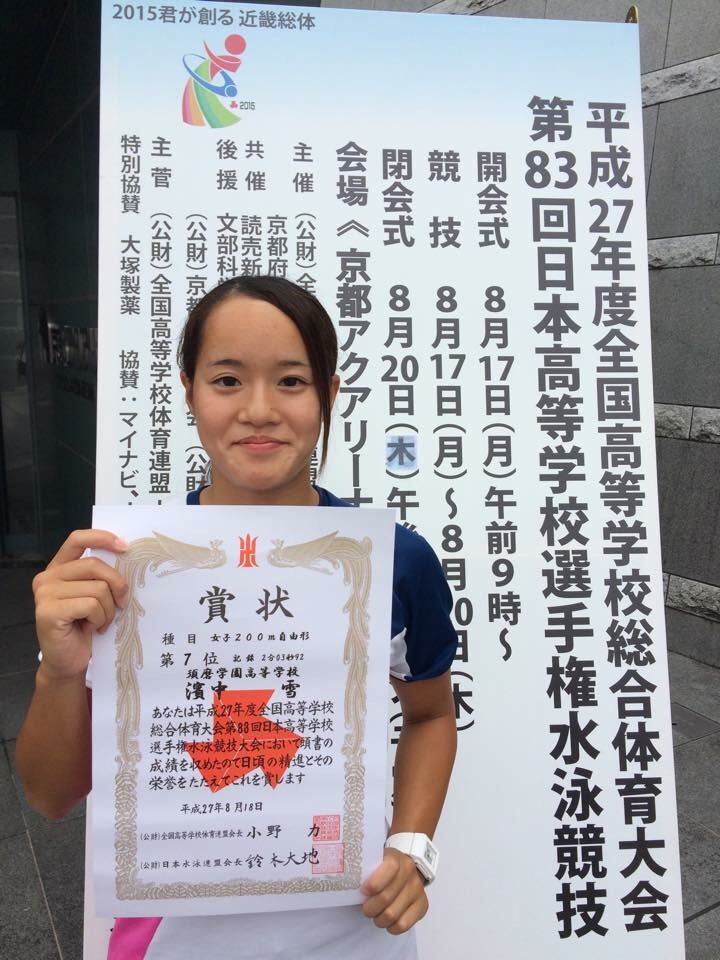 2015君が創る 近畿総体
2015
平成27年度全国高等学校総合体育大会
第83回日本高等学校選手権水泳競技
開会式 8月17日(月)午前9時〜
競技 8月17日(月)〜8月20日(木)
閉会式 8月20日(木)午後
会場《京都アクアリーナ
主催 (公財)全
京都府
共催 読売新
後援 文部科
(公財)京
主管 (公財)全国高等学校体育連盟
特別協賛 大塚製薬 協賛:マイナビ、
賞状
種目 女子200m自由形
第7位 記録 2分03秒92
須磨学園高等学校
濱中 雪
あなたは平成27年度全国高等学校
総合体育大会第83回日本高等学校
選手権水泳競技大会において頭書の
成績を収めたので日頃の精進とその
栄誉をたたえてこれを賞します
平成27年8月18日
(公財)全国高等学校体育連盟会長 小野 力
(公財)日本水泳連盟会長 鈴木大地